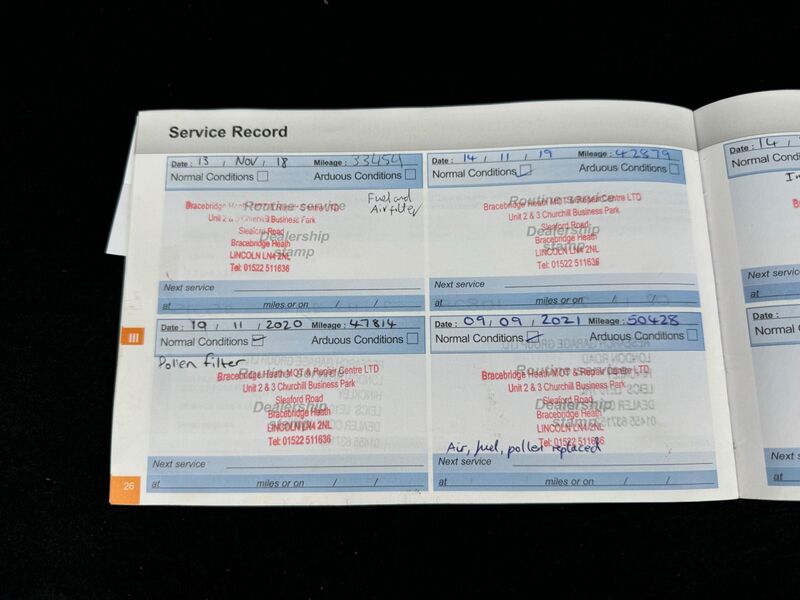 Service Record
Date : 13 , Nov , 18 Mileage : 33454
Normal Conditions Arduous Conditions
Fuel and
Air filter
Routine service
Dealership
stamp
Bracebridge Heath MOT & Repair Centre LTD
Unit 2 & 3 Churchill Business Park
Sleaford Road
Bracebridge Heath
LINCOLN LN4 2NL
Tel: 01522 511636
Next service
at miles or on / /
Date : 14 , 11 , 19 Mileage : 42879
Normal Conditions Arduous Conditions
Routine service
Dealership
stamp
Bracebridge Heath MOT & Repair Centre LTD
Unit 2 & 3 Churchill Business Park
Sleaford Road
Bracebridge Heath
LINCOLN LN4 2NL
Tel: 01522 511636
Next service
at miles or on / /
Date : 19 , 11 , 2020 Mileage : 47814
Normal Conditions Arduous Conditions
Pollen filter
Routine service
Dealership
stamp
Bracebridge Heath MOT & Repair Centre LTD
Unit 2 & 3 Churchill Business Park
Sleaford Road
Bracebridge Heath
LINCOLN LN4 2NL
Tel: 01522 511636
Next service
at miles or on / /
Date : 09, 09 , 2021 Mileage : 50428
Normal Conditions Arduous Conditions
Routine service
Dealership
stamp
Bracebridge Heath MOT & Repair Centre LTD
Unit 2 & 3 Churchill Business Park
Sleaford Road
Bracebridge Heath
LINCOLN LN4 2NL
Tel: 01522 511636
Air, fuel, pollen replaced
Next service
at miles or on / /
III
26
Date : 14 ,
Normal Con
Next service
at
Date :
Normal
Next s
at